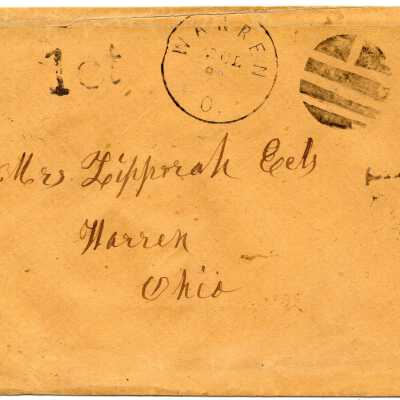 1 ct
WARREN
O.
Mrs. Zipporah Eels
Warren
Ohio